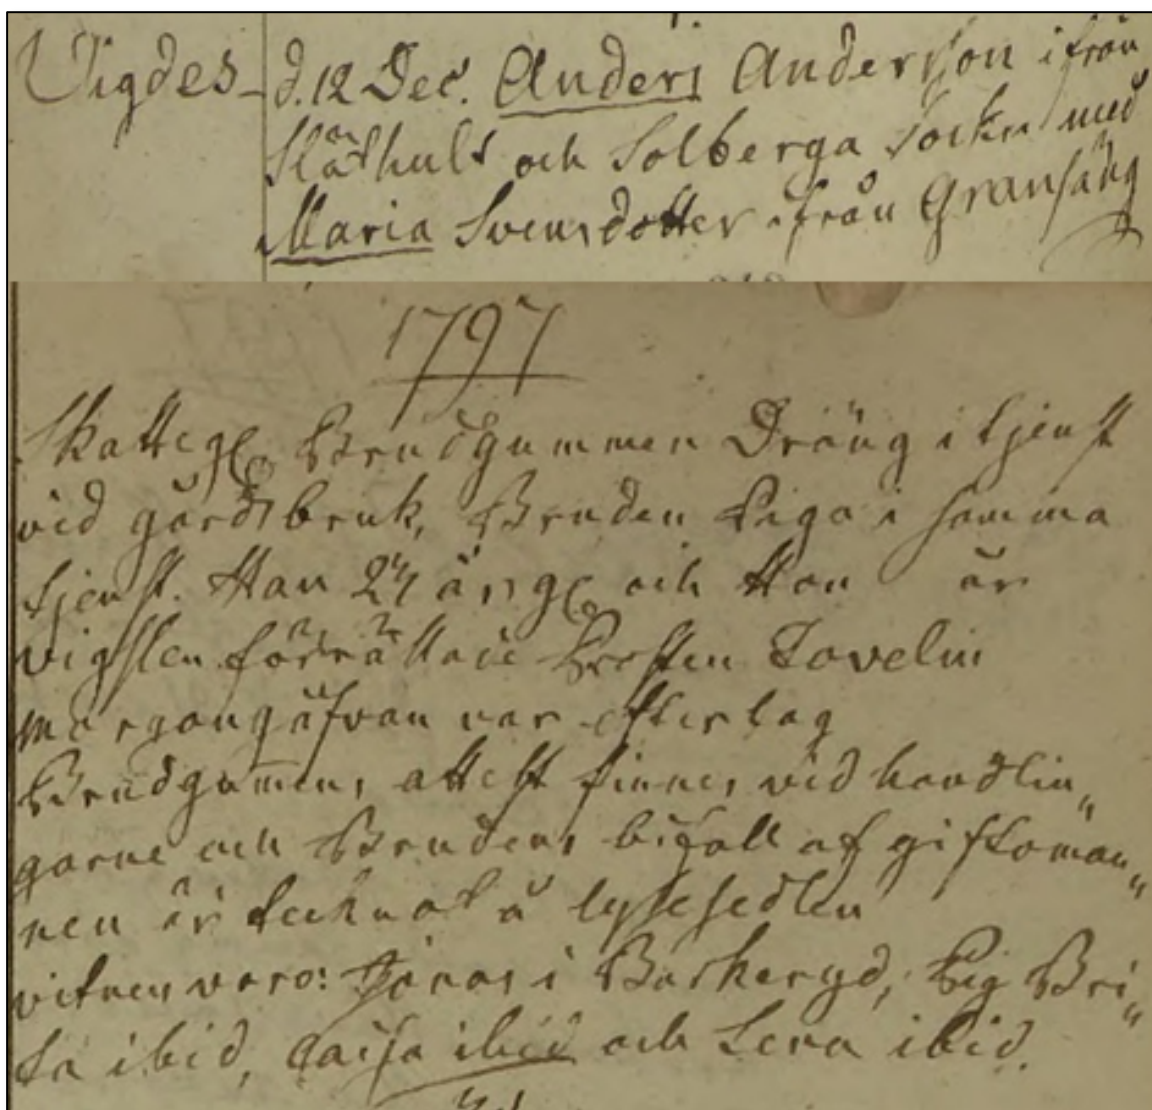 Vigdes d. 12 Dec. Anders Andersson ifrån
Släthult och Solberga Socken med
Maria Svensdotter ifrån Gransäng
1797
Skatte Brudgummen Dräng i tjenst
vid gårdsbruk, Bruden Piga i samma
tjenst. Han 24 års och Hon år
vigslen förrättade Tovelin
morgongåfvan var efter lag
Brudgumens attest finnes vid handlin„
garne och Brudens bifall af giftoman„
nen är tecknat å lysesedlen
vitnen voro: Jonas i Barkeryd, Pig Bri„
ta ibid, Caisa ibid och Lena ibid.